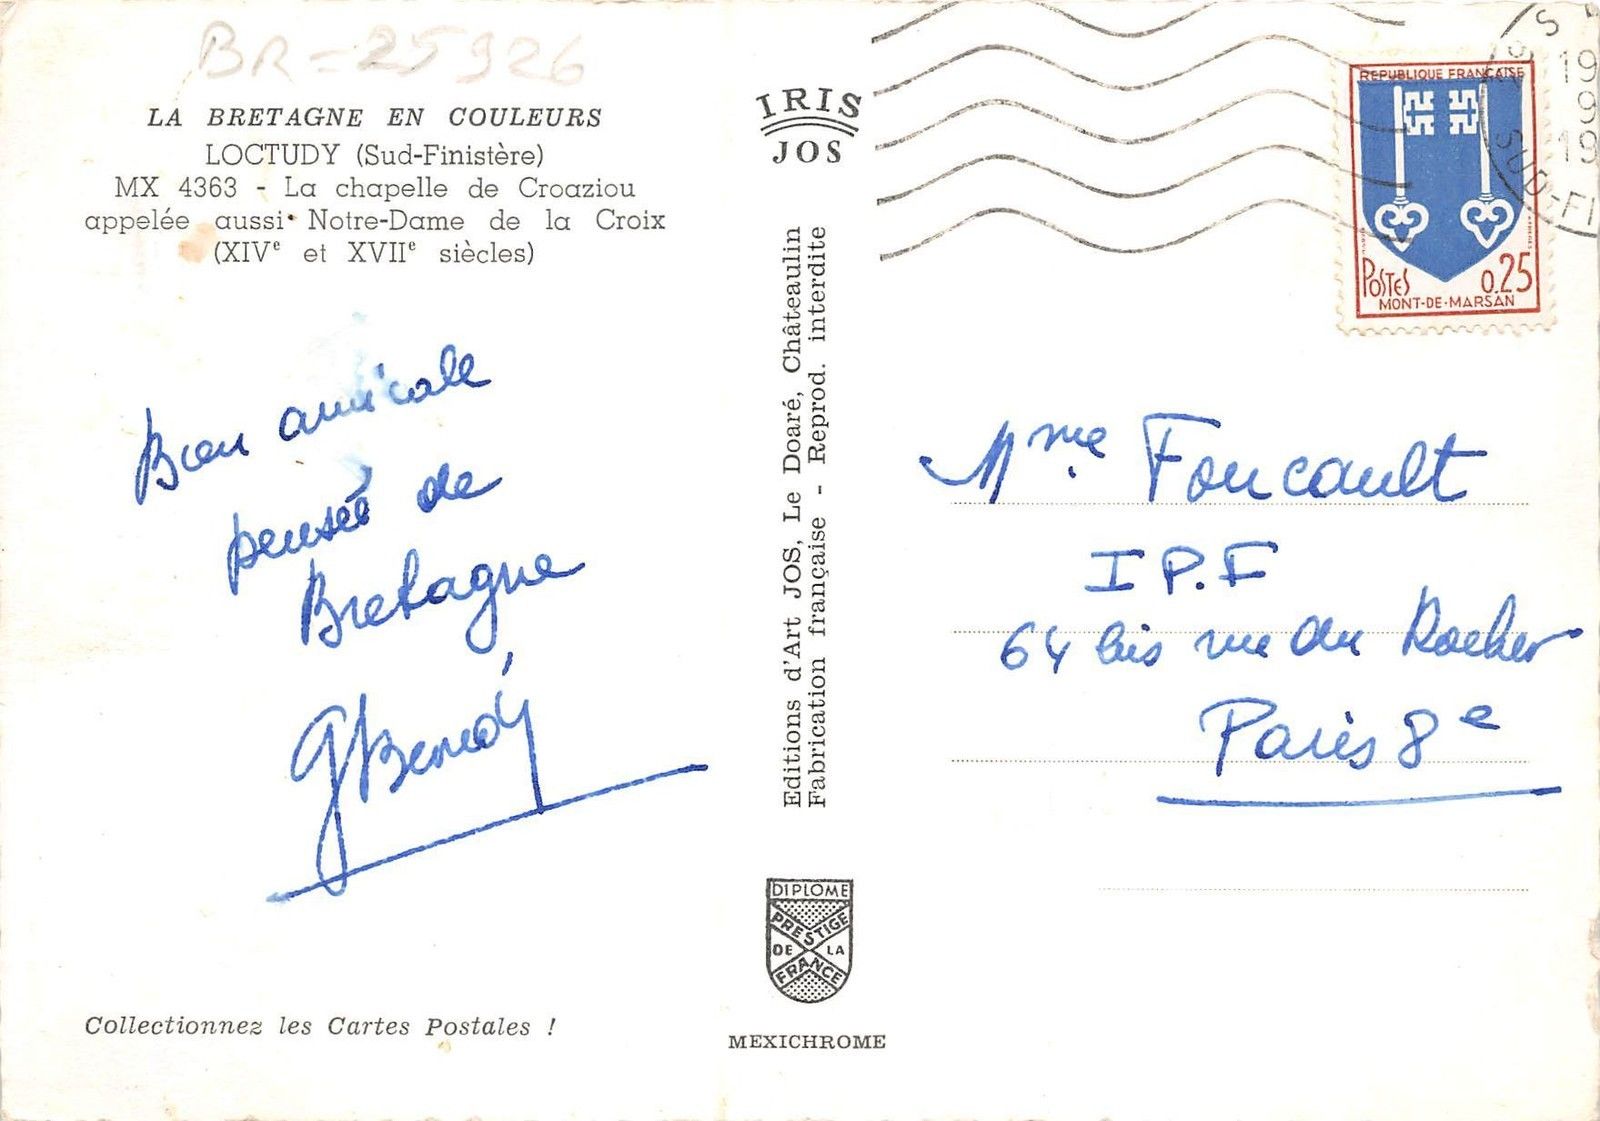 BR=25926
LA BRETAGNE EN COULEURS
LOCTUDY (Sud-Finistère)
MX 4363 - La chapelle de Croaziou
appelée aussi Notre-Dame de la Croix
(XIVe et XVIIe siècles)
Bien amicale
pensée de
Bretagne
Collectionnez les Cartes Postales !
IRIS
JOS
Editions d'Art JOS, Le Doaré, Châteaulin
Fabrication française - Reprod. interdite
DIPLOME
PRESTIGE
DE LA
FRANCE
MEXICHROME
REPUBLIQUE FRANÇAISE
POSTES 0,25
MONT-DE-MARSAN
19
9
19
SUD-FI
Mme Foucault
I P.F
64 bis rue du Rocher
Paris 8e